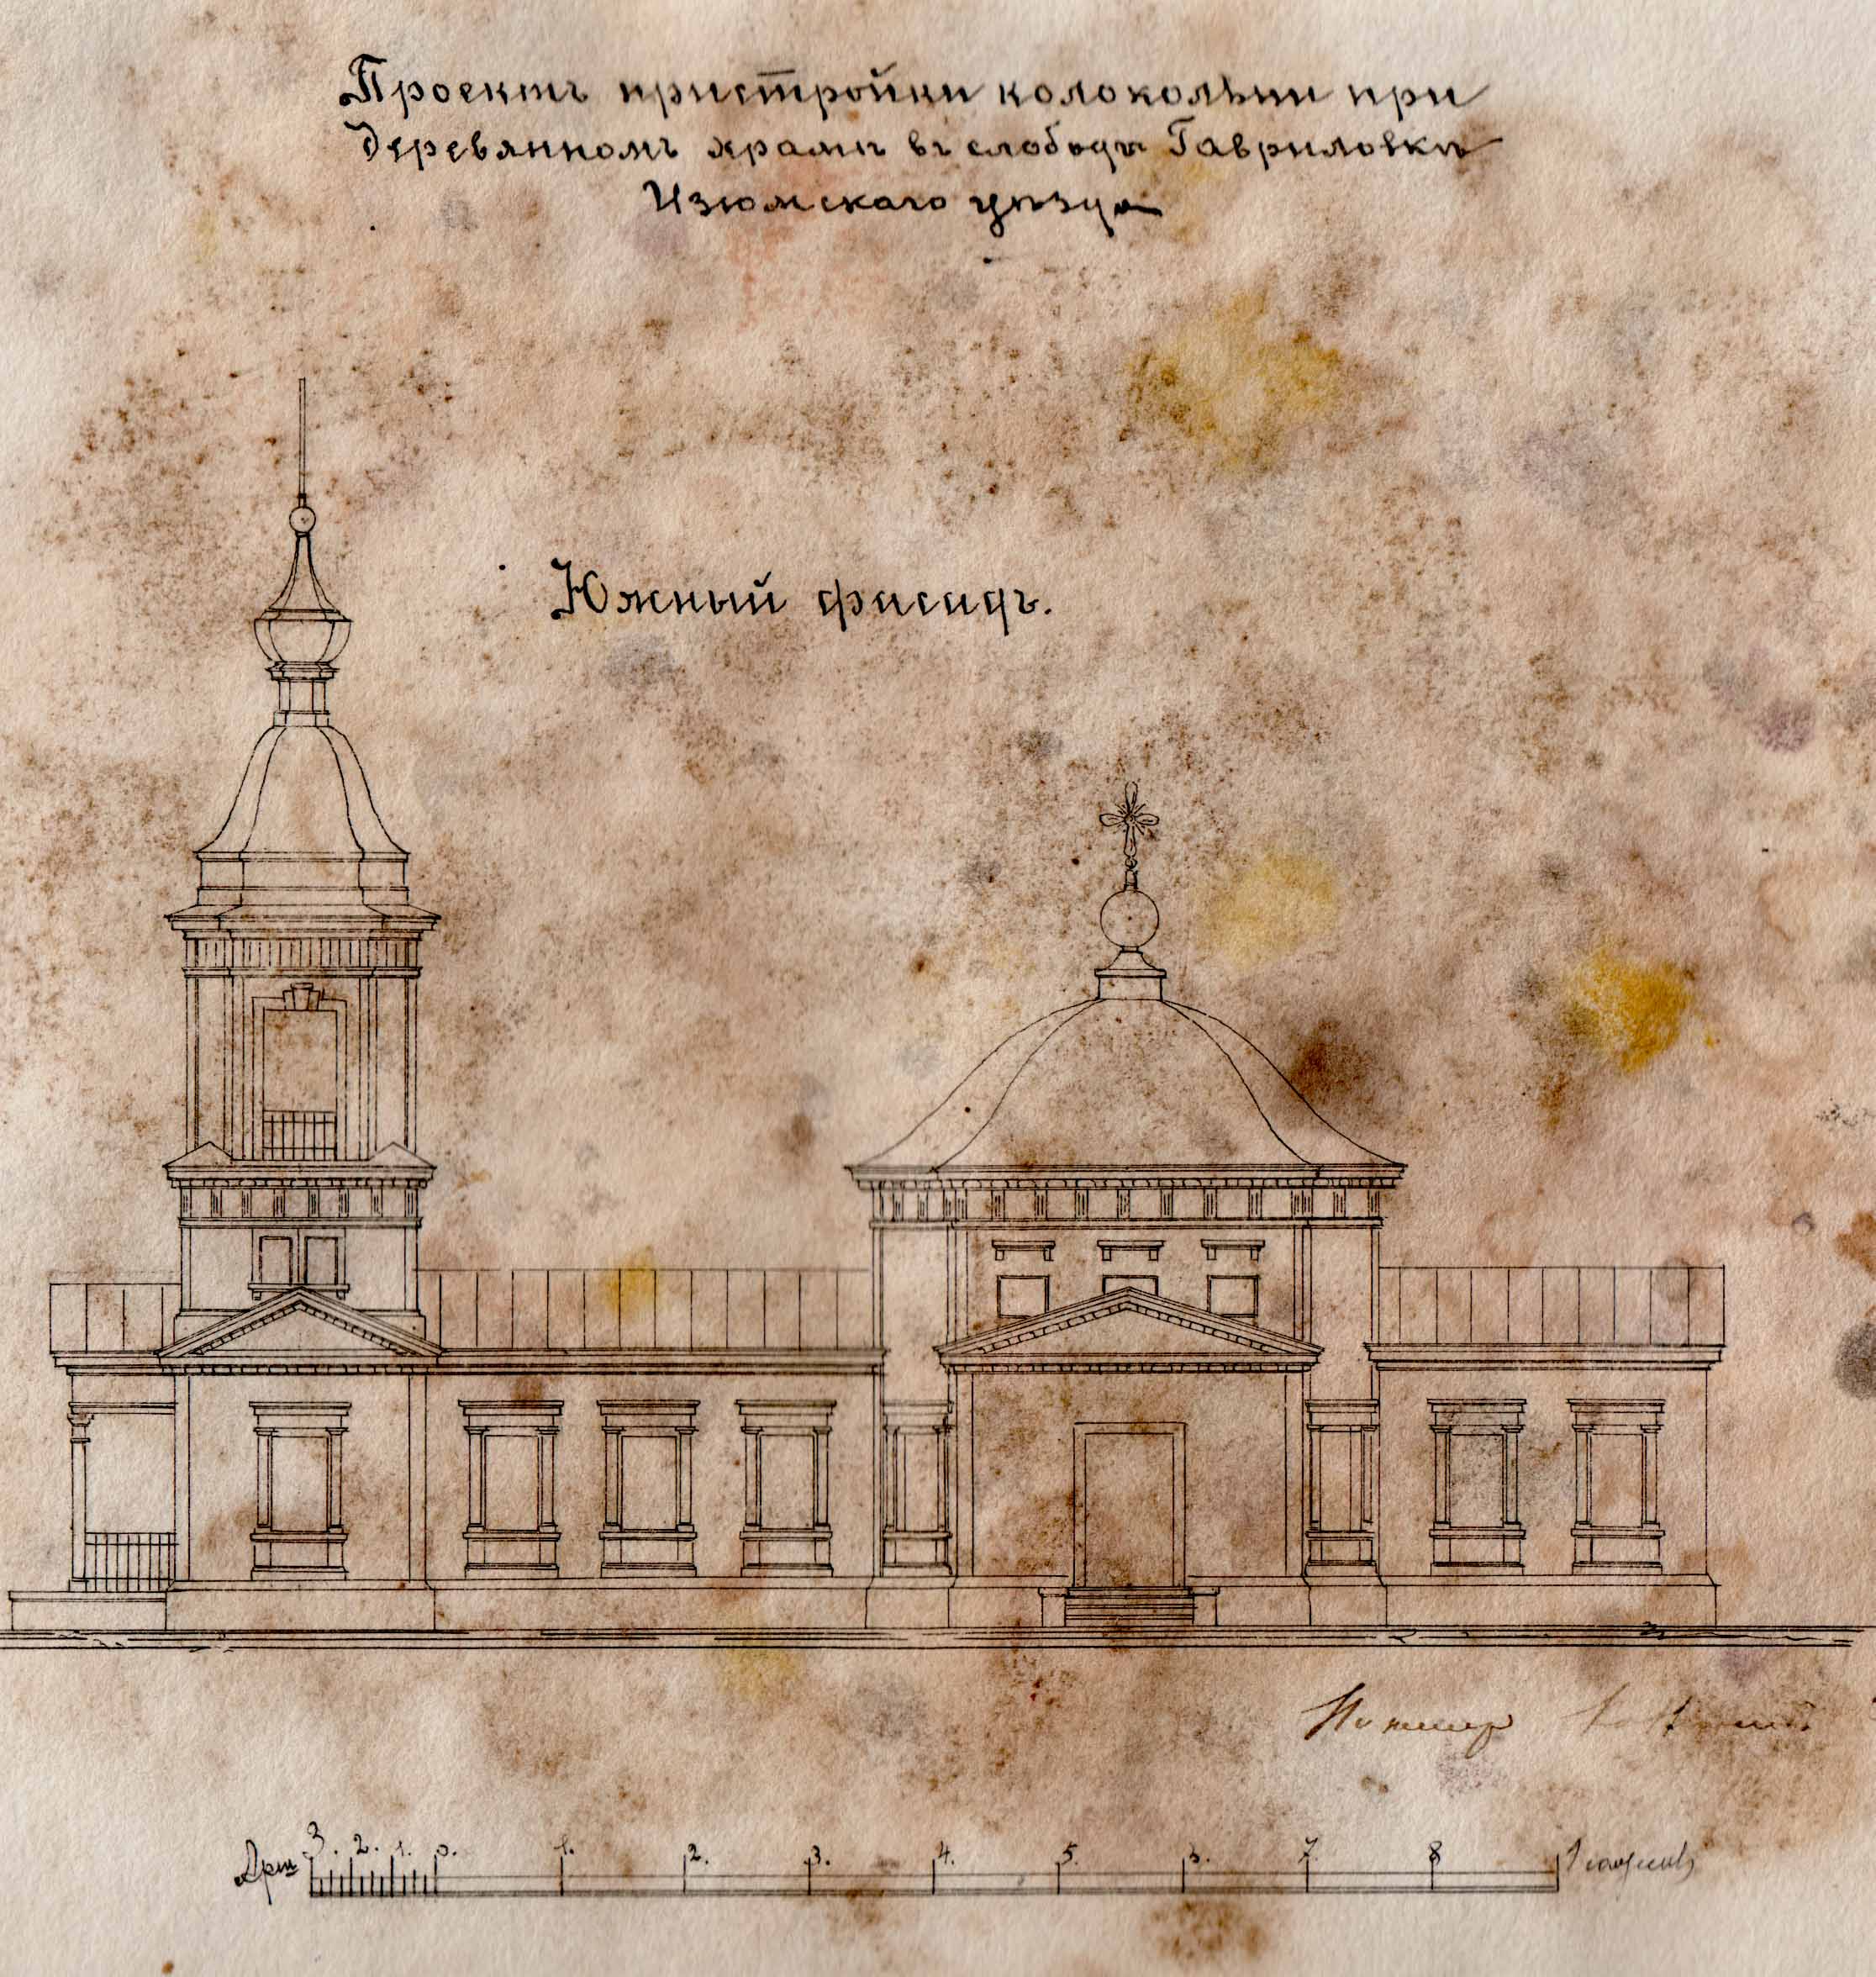 Проектъ пристройки колокольни при
деревянномъ храмѣ въ слободѣ Гавриловкѣ
Изюмскаго уѣзда
Южный фасадъ.
Инженер
Арш 3. 2. 1. 0. 1. 2. 3. 4. 5. 6. 7. 8